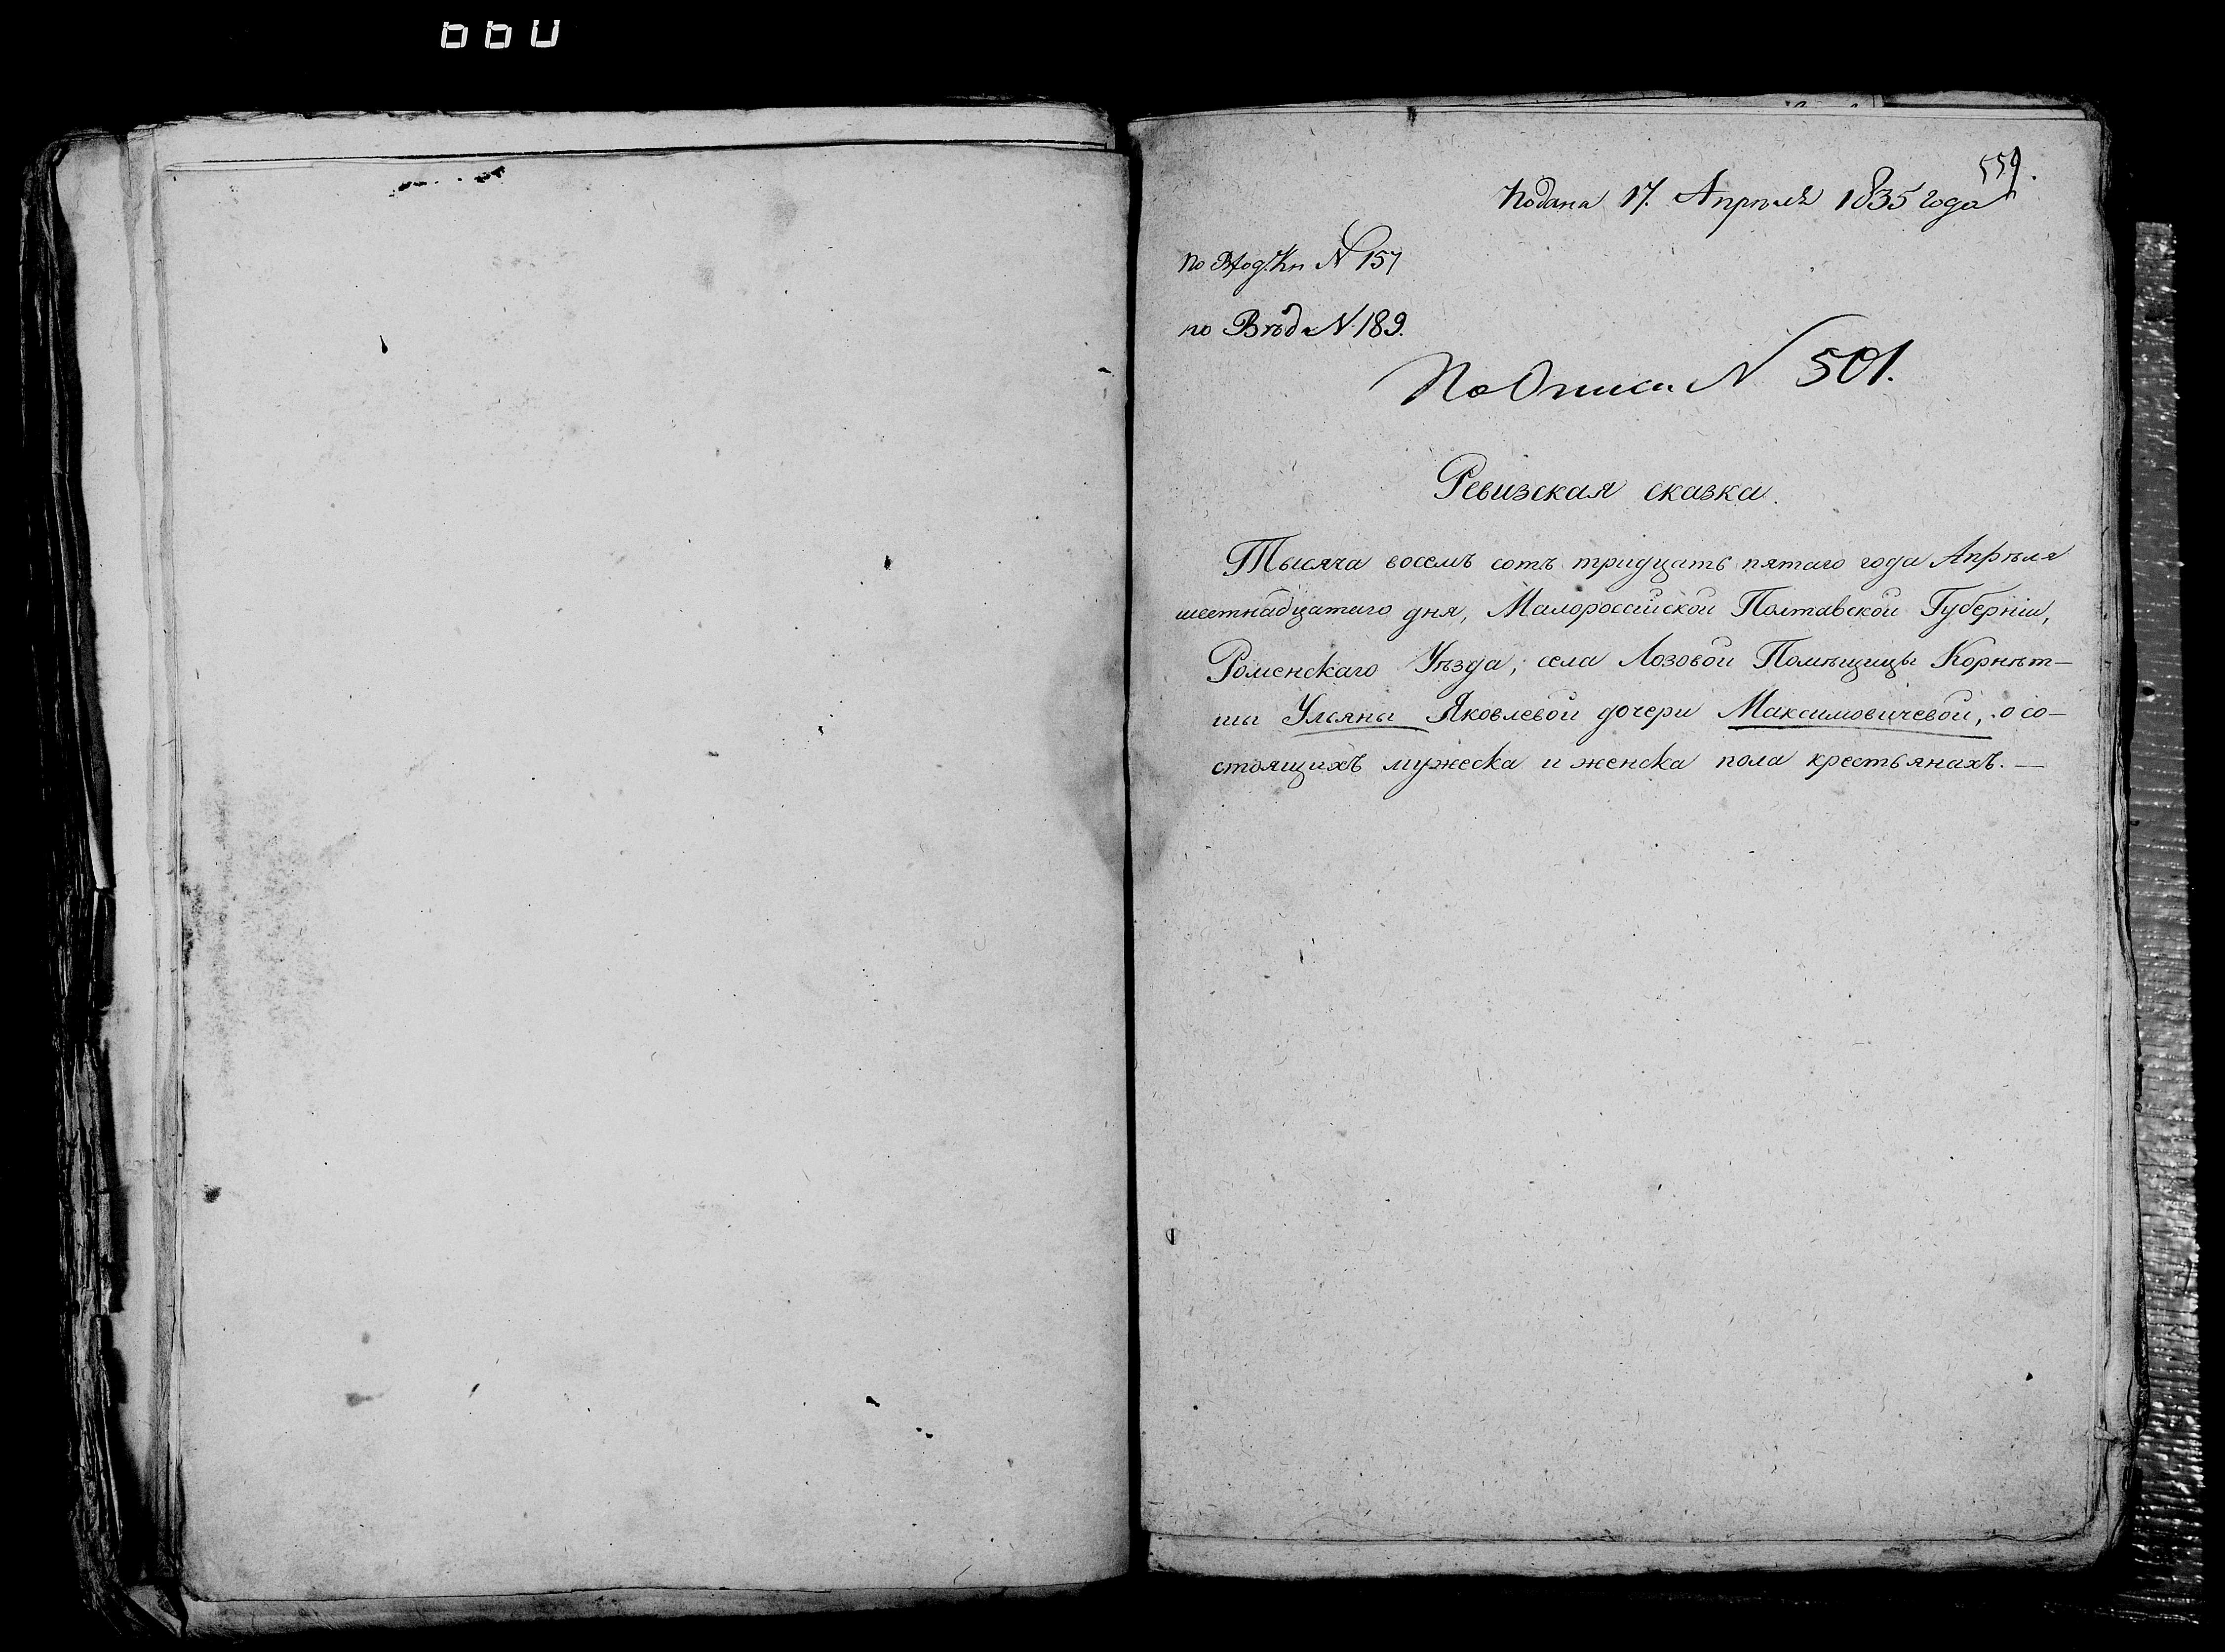 660
559.
Подана 17. Апрѣля 1835 года
по Вход. Кн № 157
по Вѣд. № 189.
По Описи № 501.
Ревизская сказка.
Тысяча восемъ сотъ тридцать пятаго года Апрѣля
шестнадцатаго дня, Малороссійской Полтавской Губерніи,
Роменскаго Уѣзда, села Лозовой Помѣщицы Корнет-
ши Ульяны Яковлевой дочери Максимовичевой, о со-
стоящихъ мужеска и женска пола крестьянахъ. —